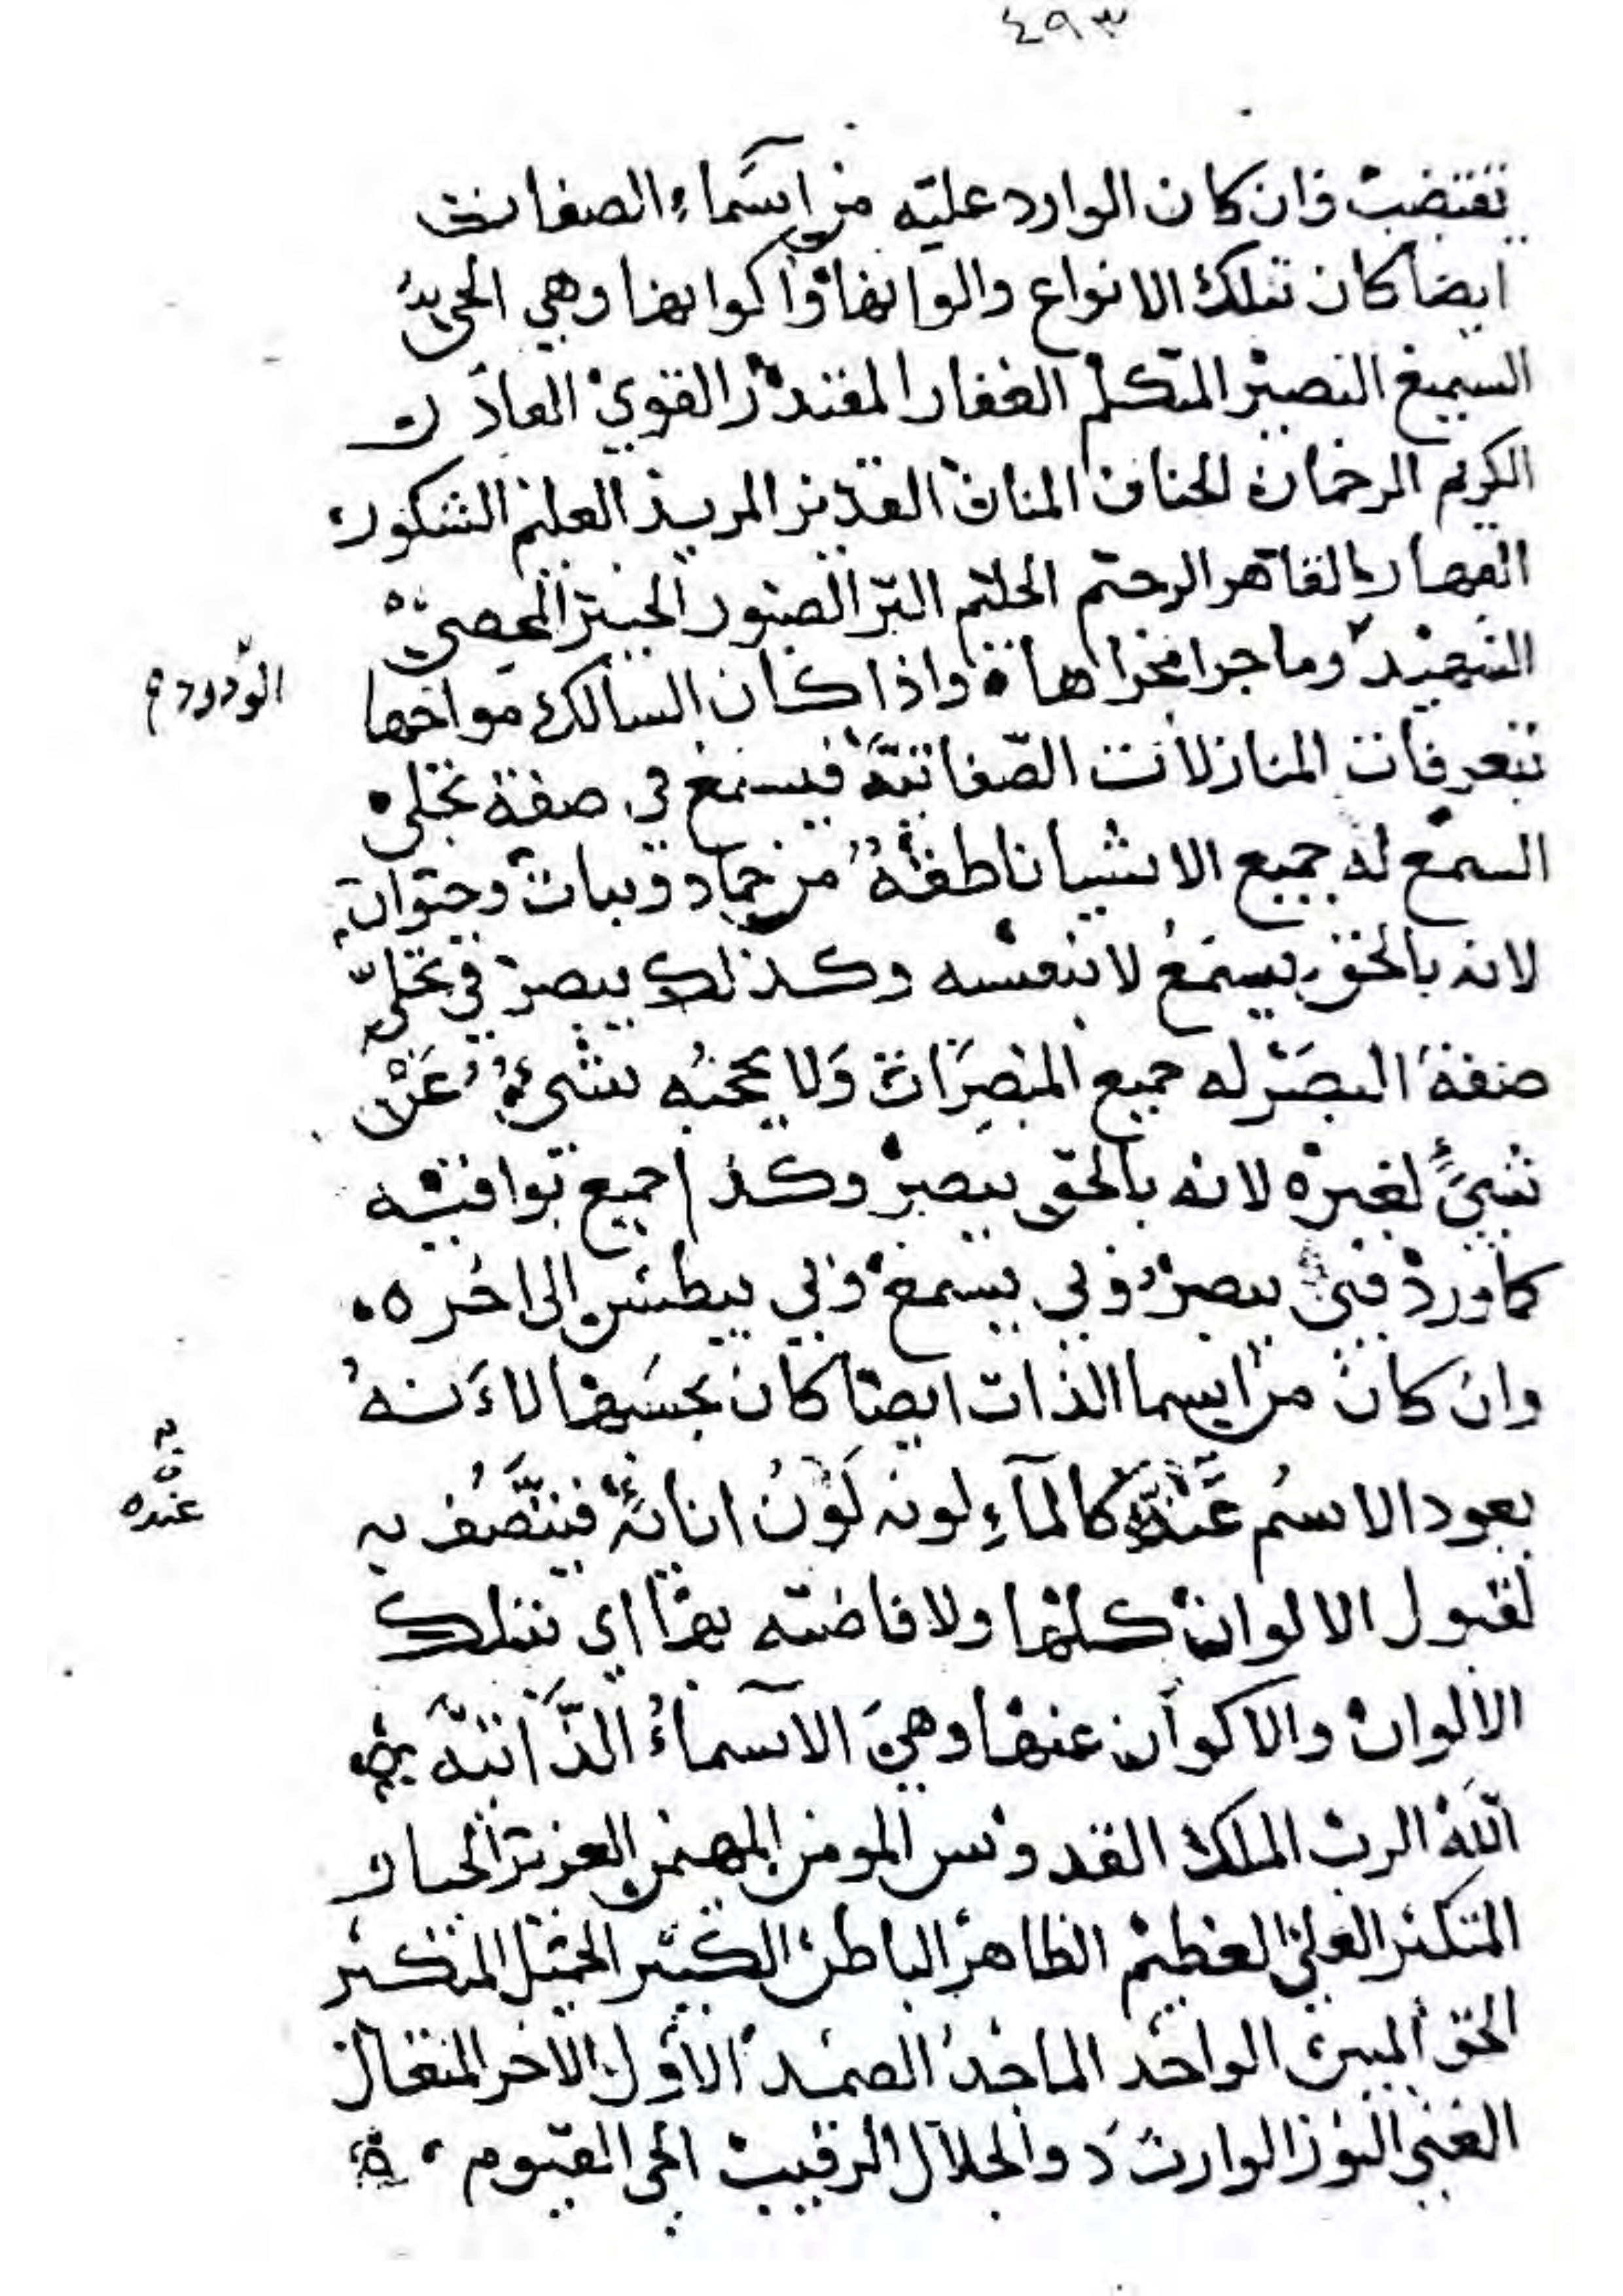 ٤٩٣
تقتضيه وان كان الوارد عليه من اسماء الصفات
ايضا كان بتلك الانواع والوانها واكوانها وهي الحي
السميع البصير المتكلم الغفار المقتدر القوي العادل
الكريم الرحمان الحنان المنان القدير المريد العليم الشكور
القهار القاهر الرحيم الحليم البر الصبور الخبير المحصي
الشهيد وما جرا مجراها واذا كان السالك مواخها
الودود
بتعرفات المنازلات الصفاتية فيسمع في صفة تجلي
السمع له جميع الاشيا ناطقة من جماد ونبات وحيوان
لانه بالحق يسمع لا بنفسه وكذلك يبصر في تجلي
صفة البصر له جميع المبصرات ولا يحجبه شيء عن
شيء لغيره لانه بالحق يبصر وكذا جميع بواقيه
كما ورد فبي يبصر وبي يسمع وبي يبطش الى اخره
وان كان من اسما الذات ايضا كان بحسبها لاءنه
يعود الاسم عنده كالمآء لونه لون انائه فيتصف به
عنده
لقبول الالوان كلها ولافاضته بها اي بتلك
الالوان والاكوان عنها وهي الآسماء الذاتية
الله الرب الملك القدوس المومن المهيمن العزيز الجبار
المتكبر العلي العظيم الظاهر الباطن الكبير الجليل المتكبر
الحق المبين الواحد الماجد الصمد الاول الاخر المتعال
الغني النور الوارث ذو الجلال الرقيب الحي القيوم